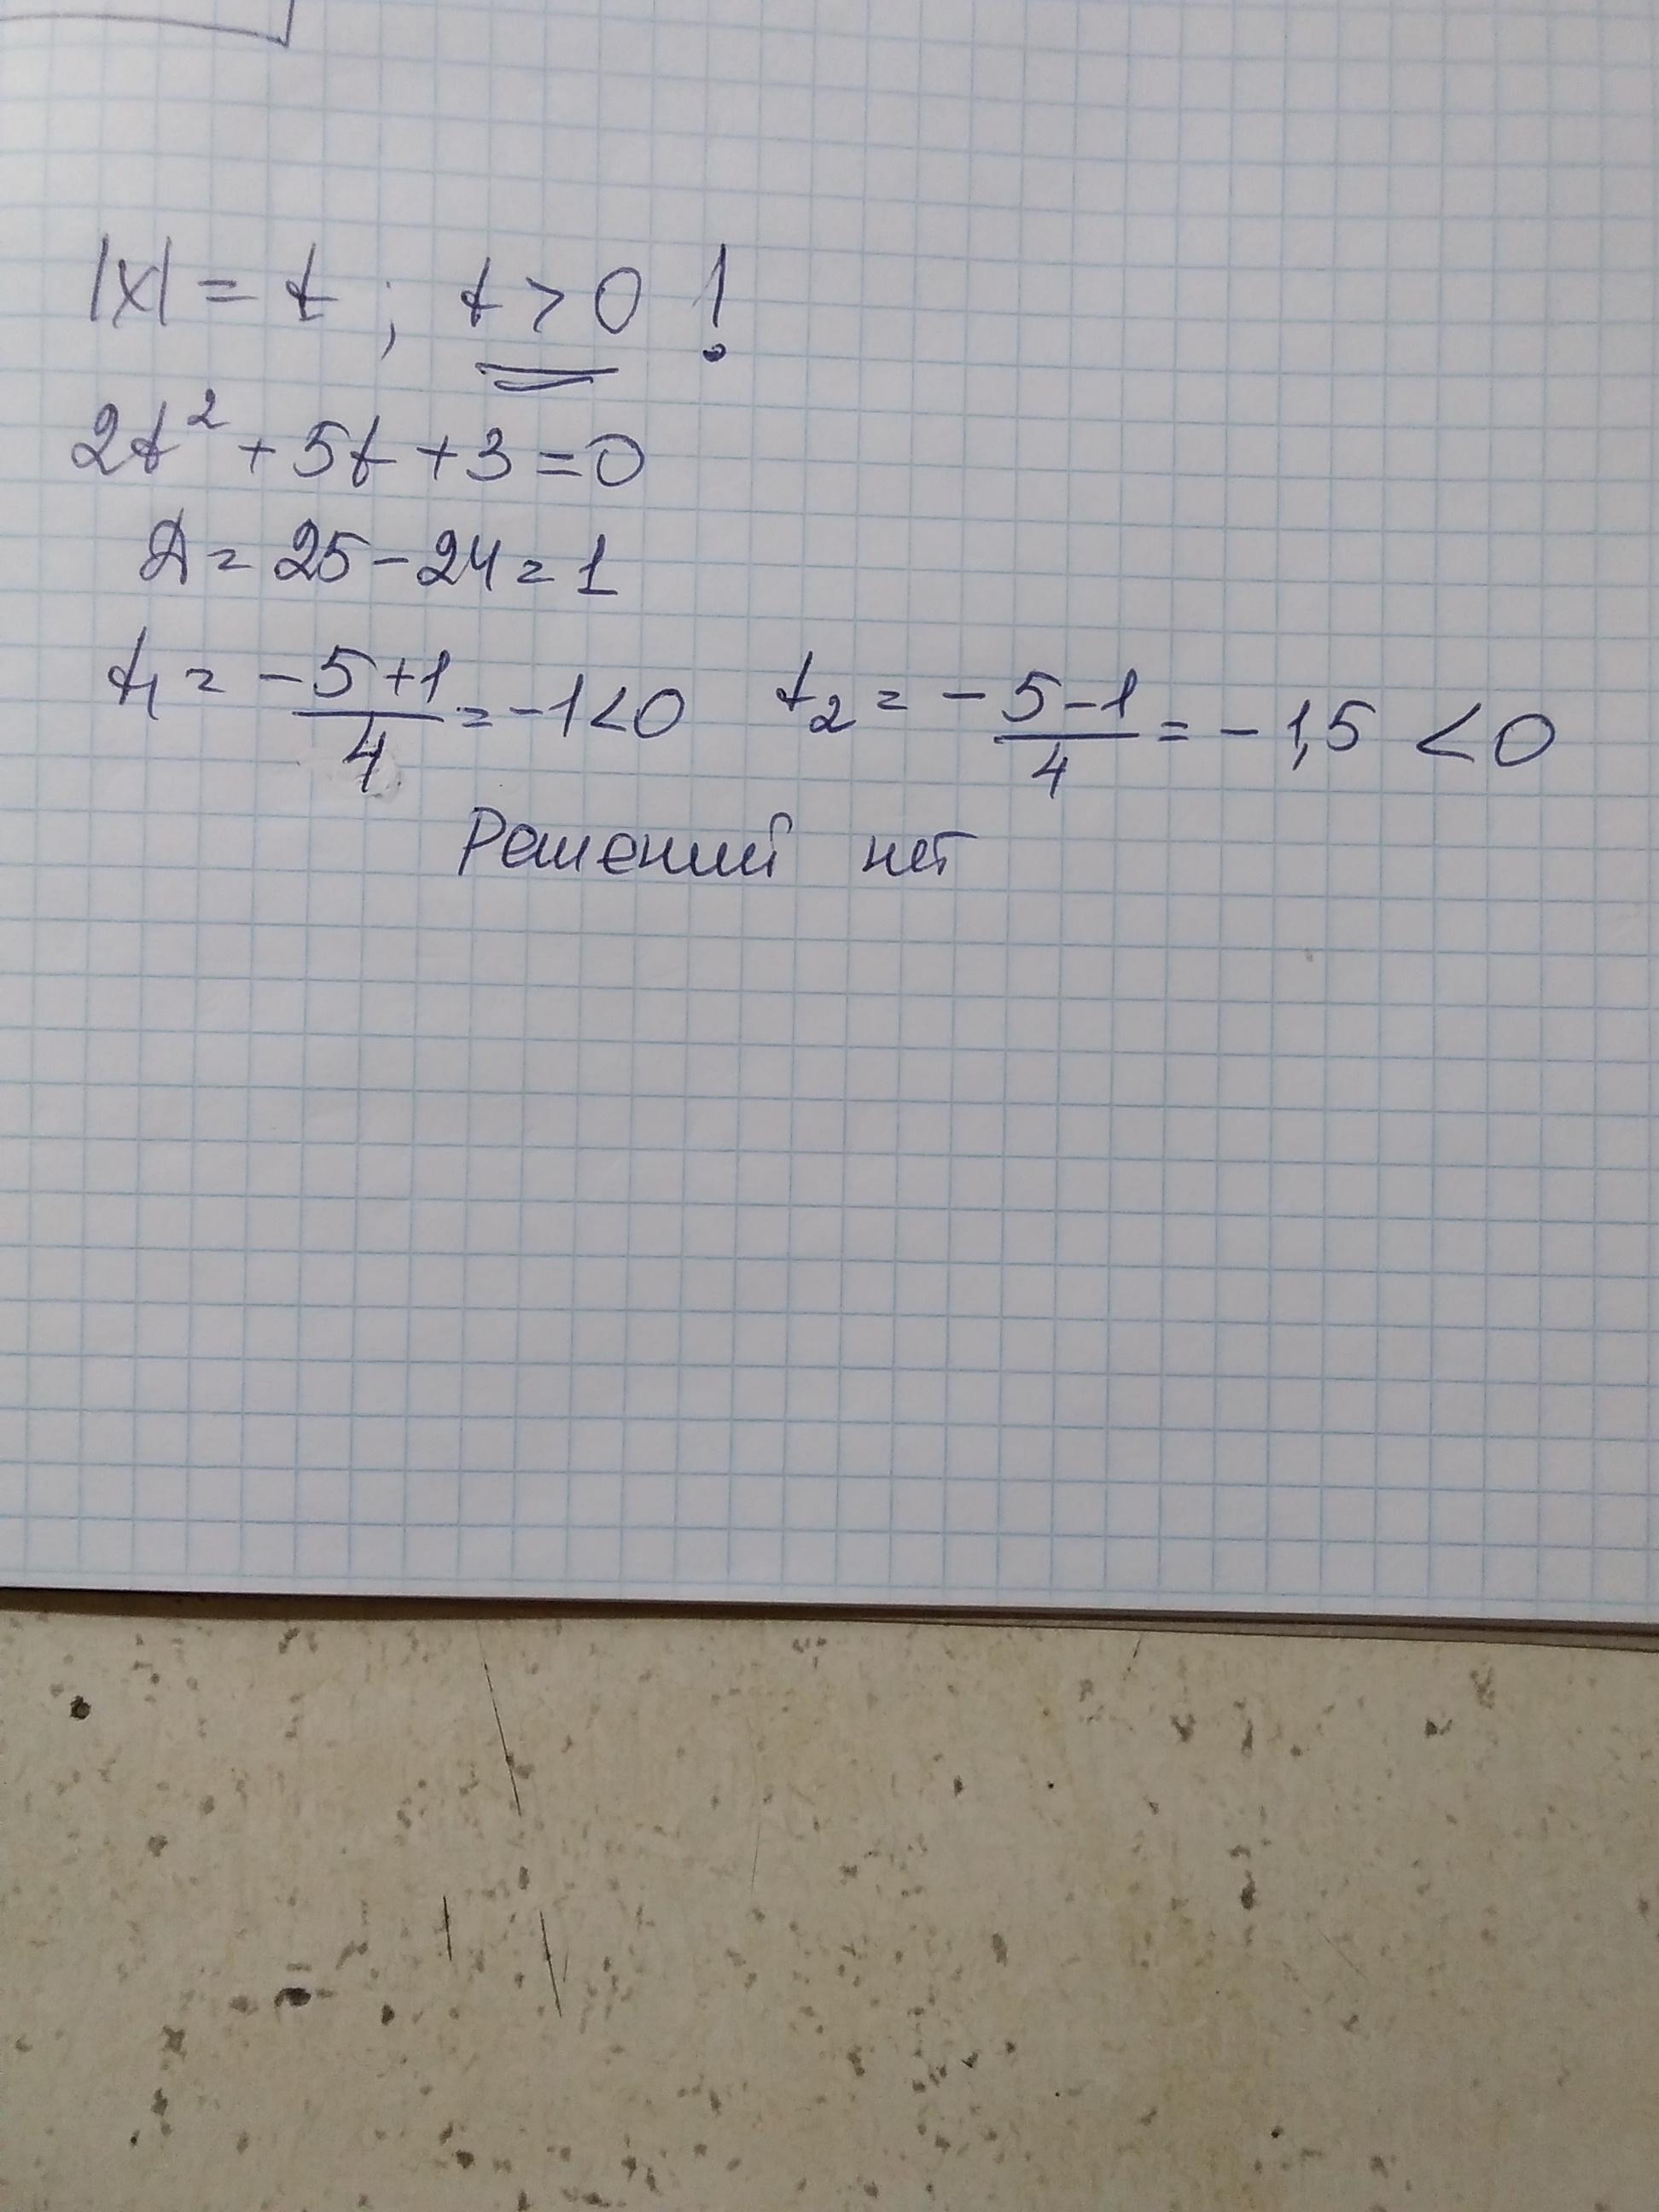 |x| = t ; t > 0 !
2t² + 5t + 3 = 0
D = 25 - 24 = 1
t₁ = -5+1/4 = -1 < 0 t₂ = -5-1/4 = -1,5 < 0
Решений нет